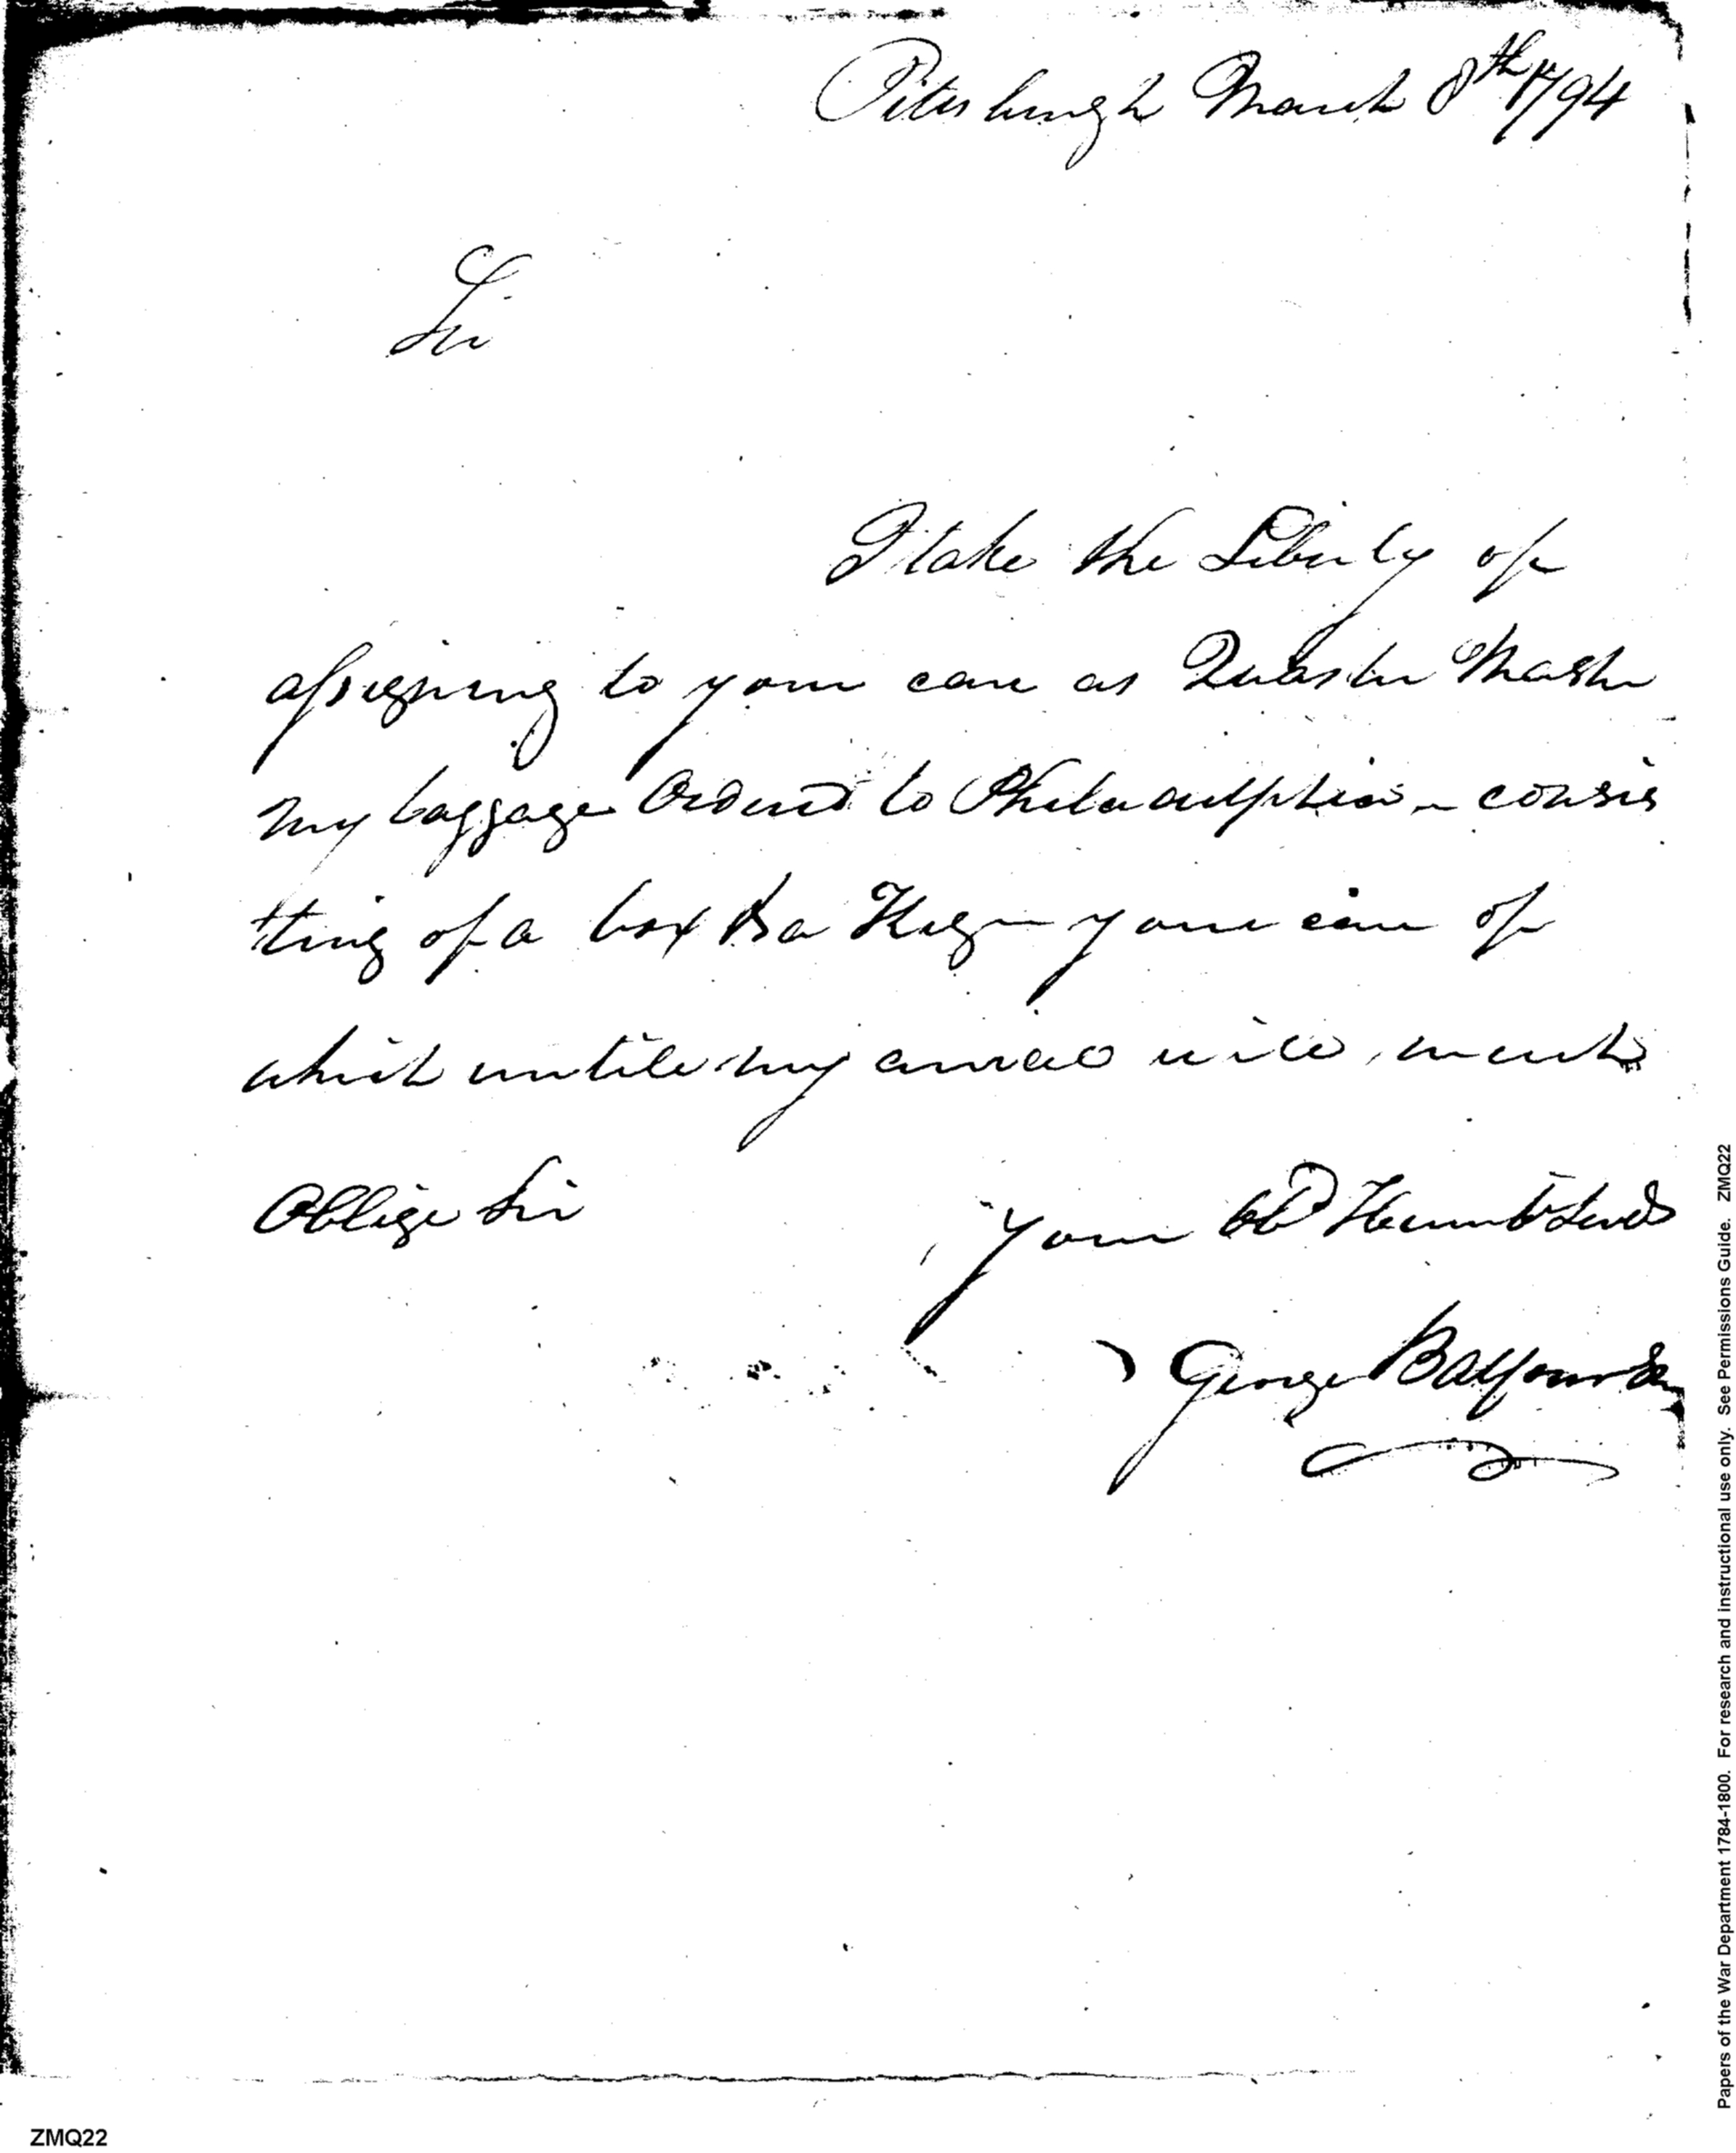 Pittsburgh March 8th 1794
Sir
I take the Liberty of
assigning to your care as Quarter Master
my baggage Ordered to Philadelphia - consis
tting of a box & a Keg - your care of
which untill my arival will much
Oblige Sir
your Obt Humb Servt
George Balfour
Papers of the War Department 1784-1800. For research and instructional use only. See Permissions Guide. ZMQ22
ZMQ22